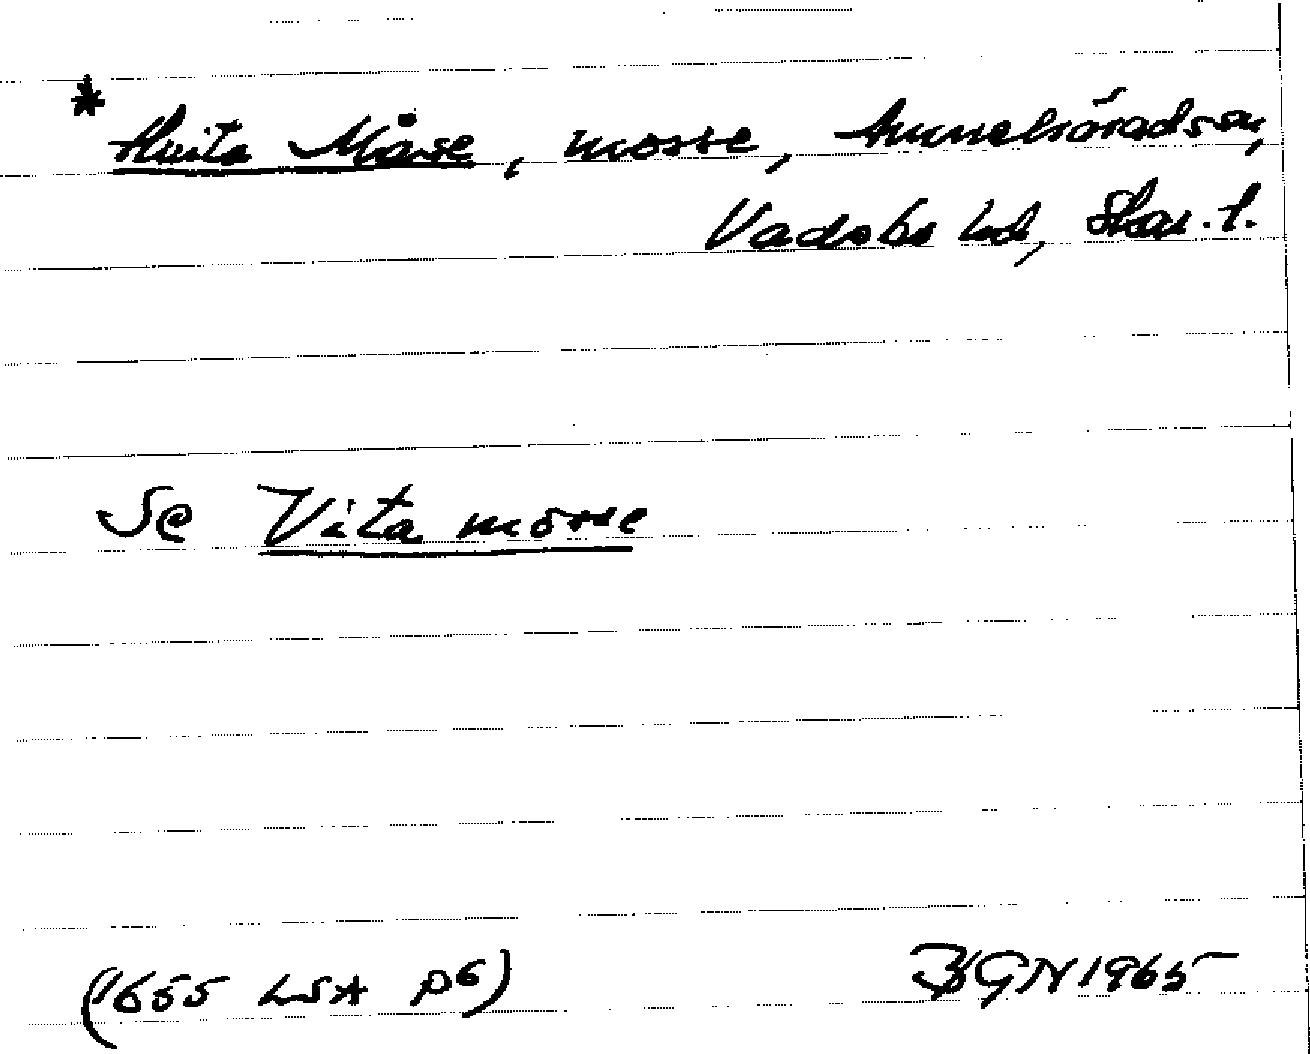 * Hvita Måse, mosse, Amnehärads sn,
Vadsbo hd, Skar. l.
Se Vita mosse
(1655 LSA P6)
BGN 1965